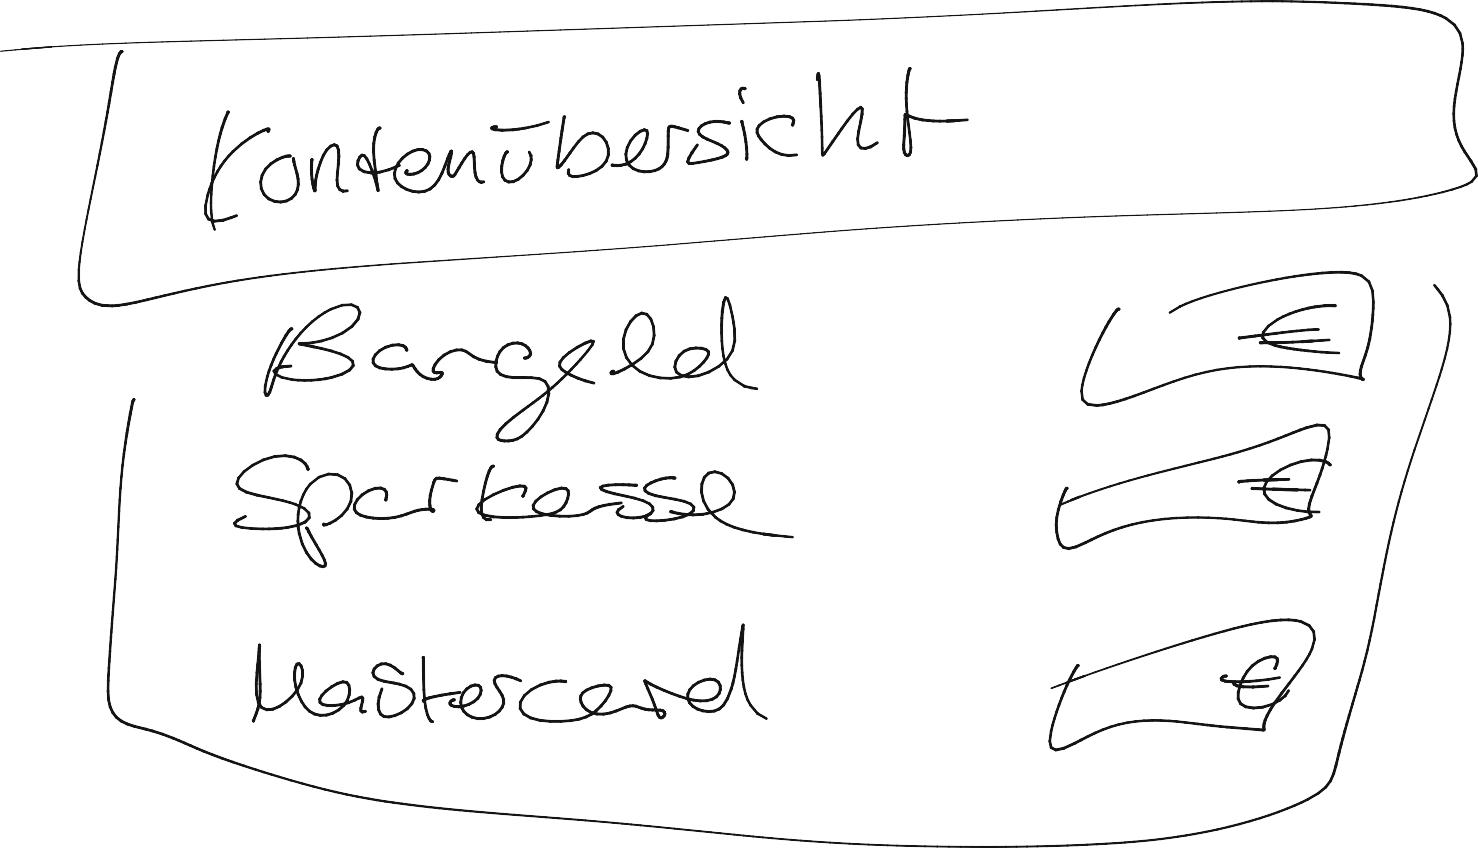 Kontenübersicht
Bargeld €
Sparkasse €
Mastercard €